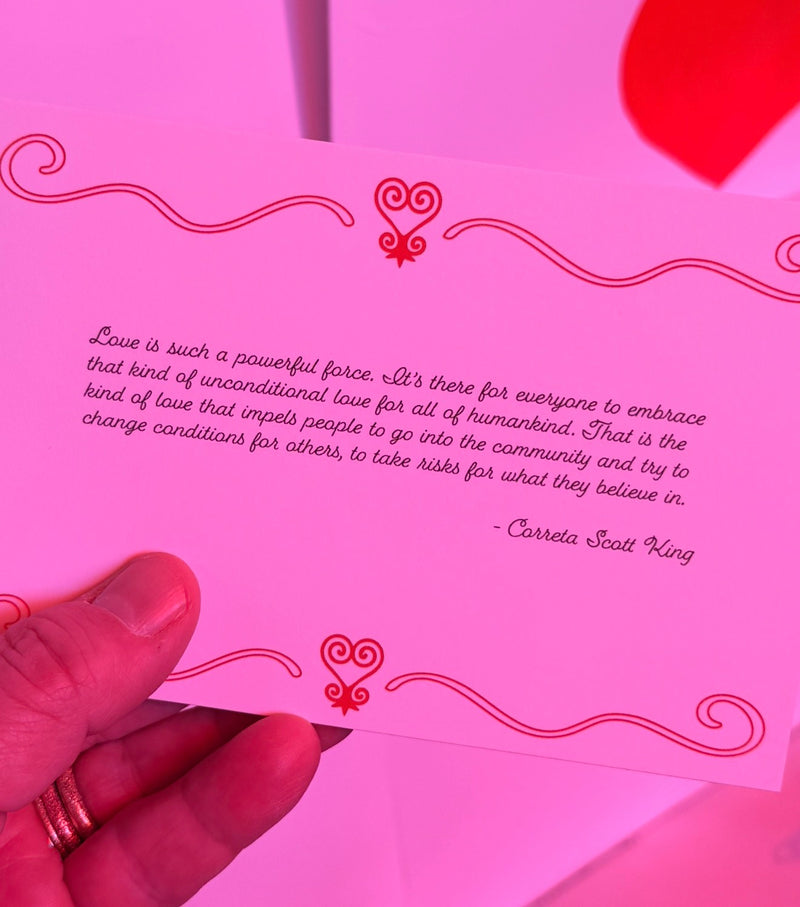 Love is such a powerful force. It's there for everyone to embrace
that kind of unconditional love for all of humankind. That is the
kind of love that impels people to go into the community and try to
change conditions for others, to take risks for what they believe in.
- Correta Scott King